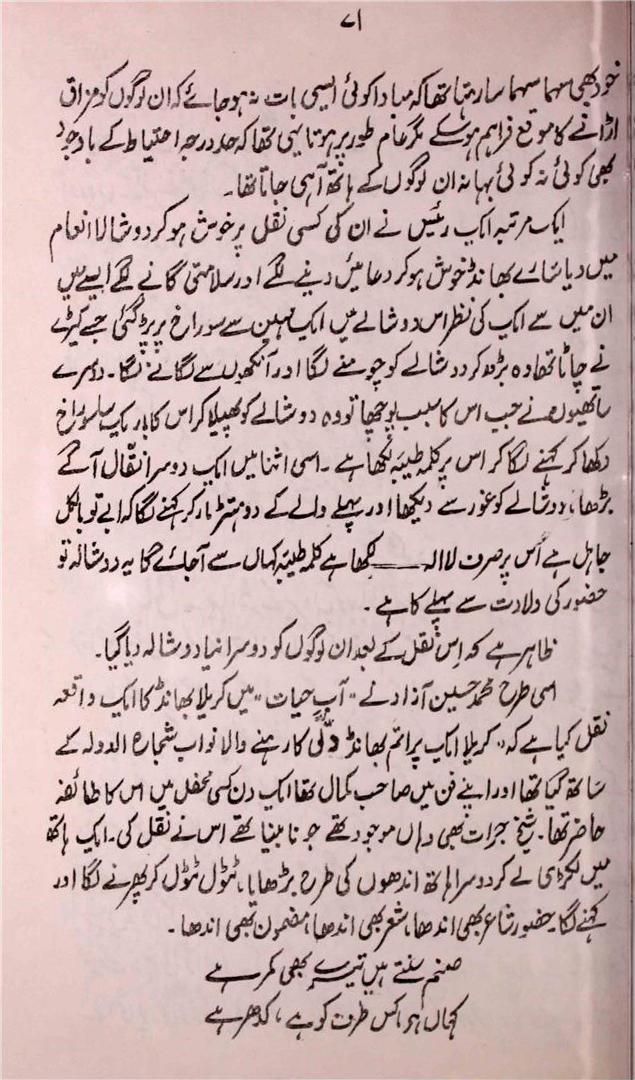 ۷۱
خود بھی سہما سہما سا رہتا تھا کہ مبادا کوئی ایسی بات نہ ہو جائے کہ ان لوگوں کو مزاق
اڑانے کا موقع فراہم ہو سکے مگر عام طور پر ہوتا یہی تھا کہ حد درجہ احتیاط کے باوجود
بھی کوئی نہ کوئی بہانہ ان لوگوں کے ہاتھ آ ہی جاتا تھا۔
ایک مرتبہ ایک رئیس نے ان کی کسی نقل پر خوش ہو کر دو شالا انعام
میں دیا سارے بھانڈ خوش ہو کر دعائیں دینے لگے اور سلامتی گانے لگے ایسے میں
ان میں سے ایک کی نظر اس دوشالے میں ایک مہین سے سوراخ پر پڑ گئی جسے کیڑے
نے چاٹا تھا وہ بڑھ کر دوشالے کو چومنے لگا اور آنکھوں سے لگانے لگا۔ دوسرے
ساتھیوں نے جب اس کا سبب پوچھا تو وہ دوشالے کو پھیلا کر اس کا باریک سا سوراخ
دکھا کر کہنے لگا کہ اس پر کلمہ طیبہ لکھا ہے۔ اسی اثنا میں ایک دوسرا نقّال آگے
بڑھا، دوشالے کو غور سے دیکھا اور پہلے والے کے دو ہتڑ مار کر کہنے لگا کہ ابے تو بالکل
جاہل ہے اُس پر صرف لاالہ ـــــ لکھا ہے کلمہ طیبہ کہاں سے آ جائے گا یہ دوشالہ تو
حضور کی ولادت سے پہلے کا ہے۔
ظاہر ہے کہ اِس نقل کے بعد ان لوگوں کو دوسرا نیا دوشالہ دیا گیا۔
اسی طرح محمد حسین آزاد نے "آبِ حیات" میں کریلا بھانڈ کا ایک واقعہ
نقل کیا ہے کہ "کریلا ایک پراتم بھانڈ دلّی کا رہنے والا نواب شجاع الدولہ کے
ساتھ گیا تھا اور اپنے فن میں صاحب کمال تھا ایک دن کسی محفل میں اس کا طائفہ
حاضر تھا۔ شیخ جرات بھی وہاں موجود تھے جو نابینا تھے اس نے نقل کی۔ ایک ہاتھ
میں لکڑی لے کر دوسرا ہاتھ اندھوں کی طرح بڑھایا، ٹٹول ٹٹول کر پھرنے لگا اور
کہنے لگا۔ حضور شاعر بھی اندھا، شعر بھی اندھا، مضمون بھی اندھا۔
صنم سنتے ہیں تیرے بھی کمر ہے
کہاں ہے، کس طرف کو ہے، کدھر ہے